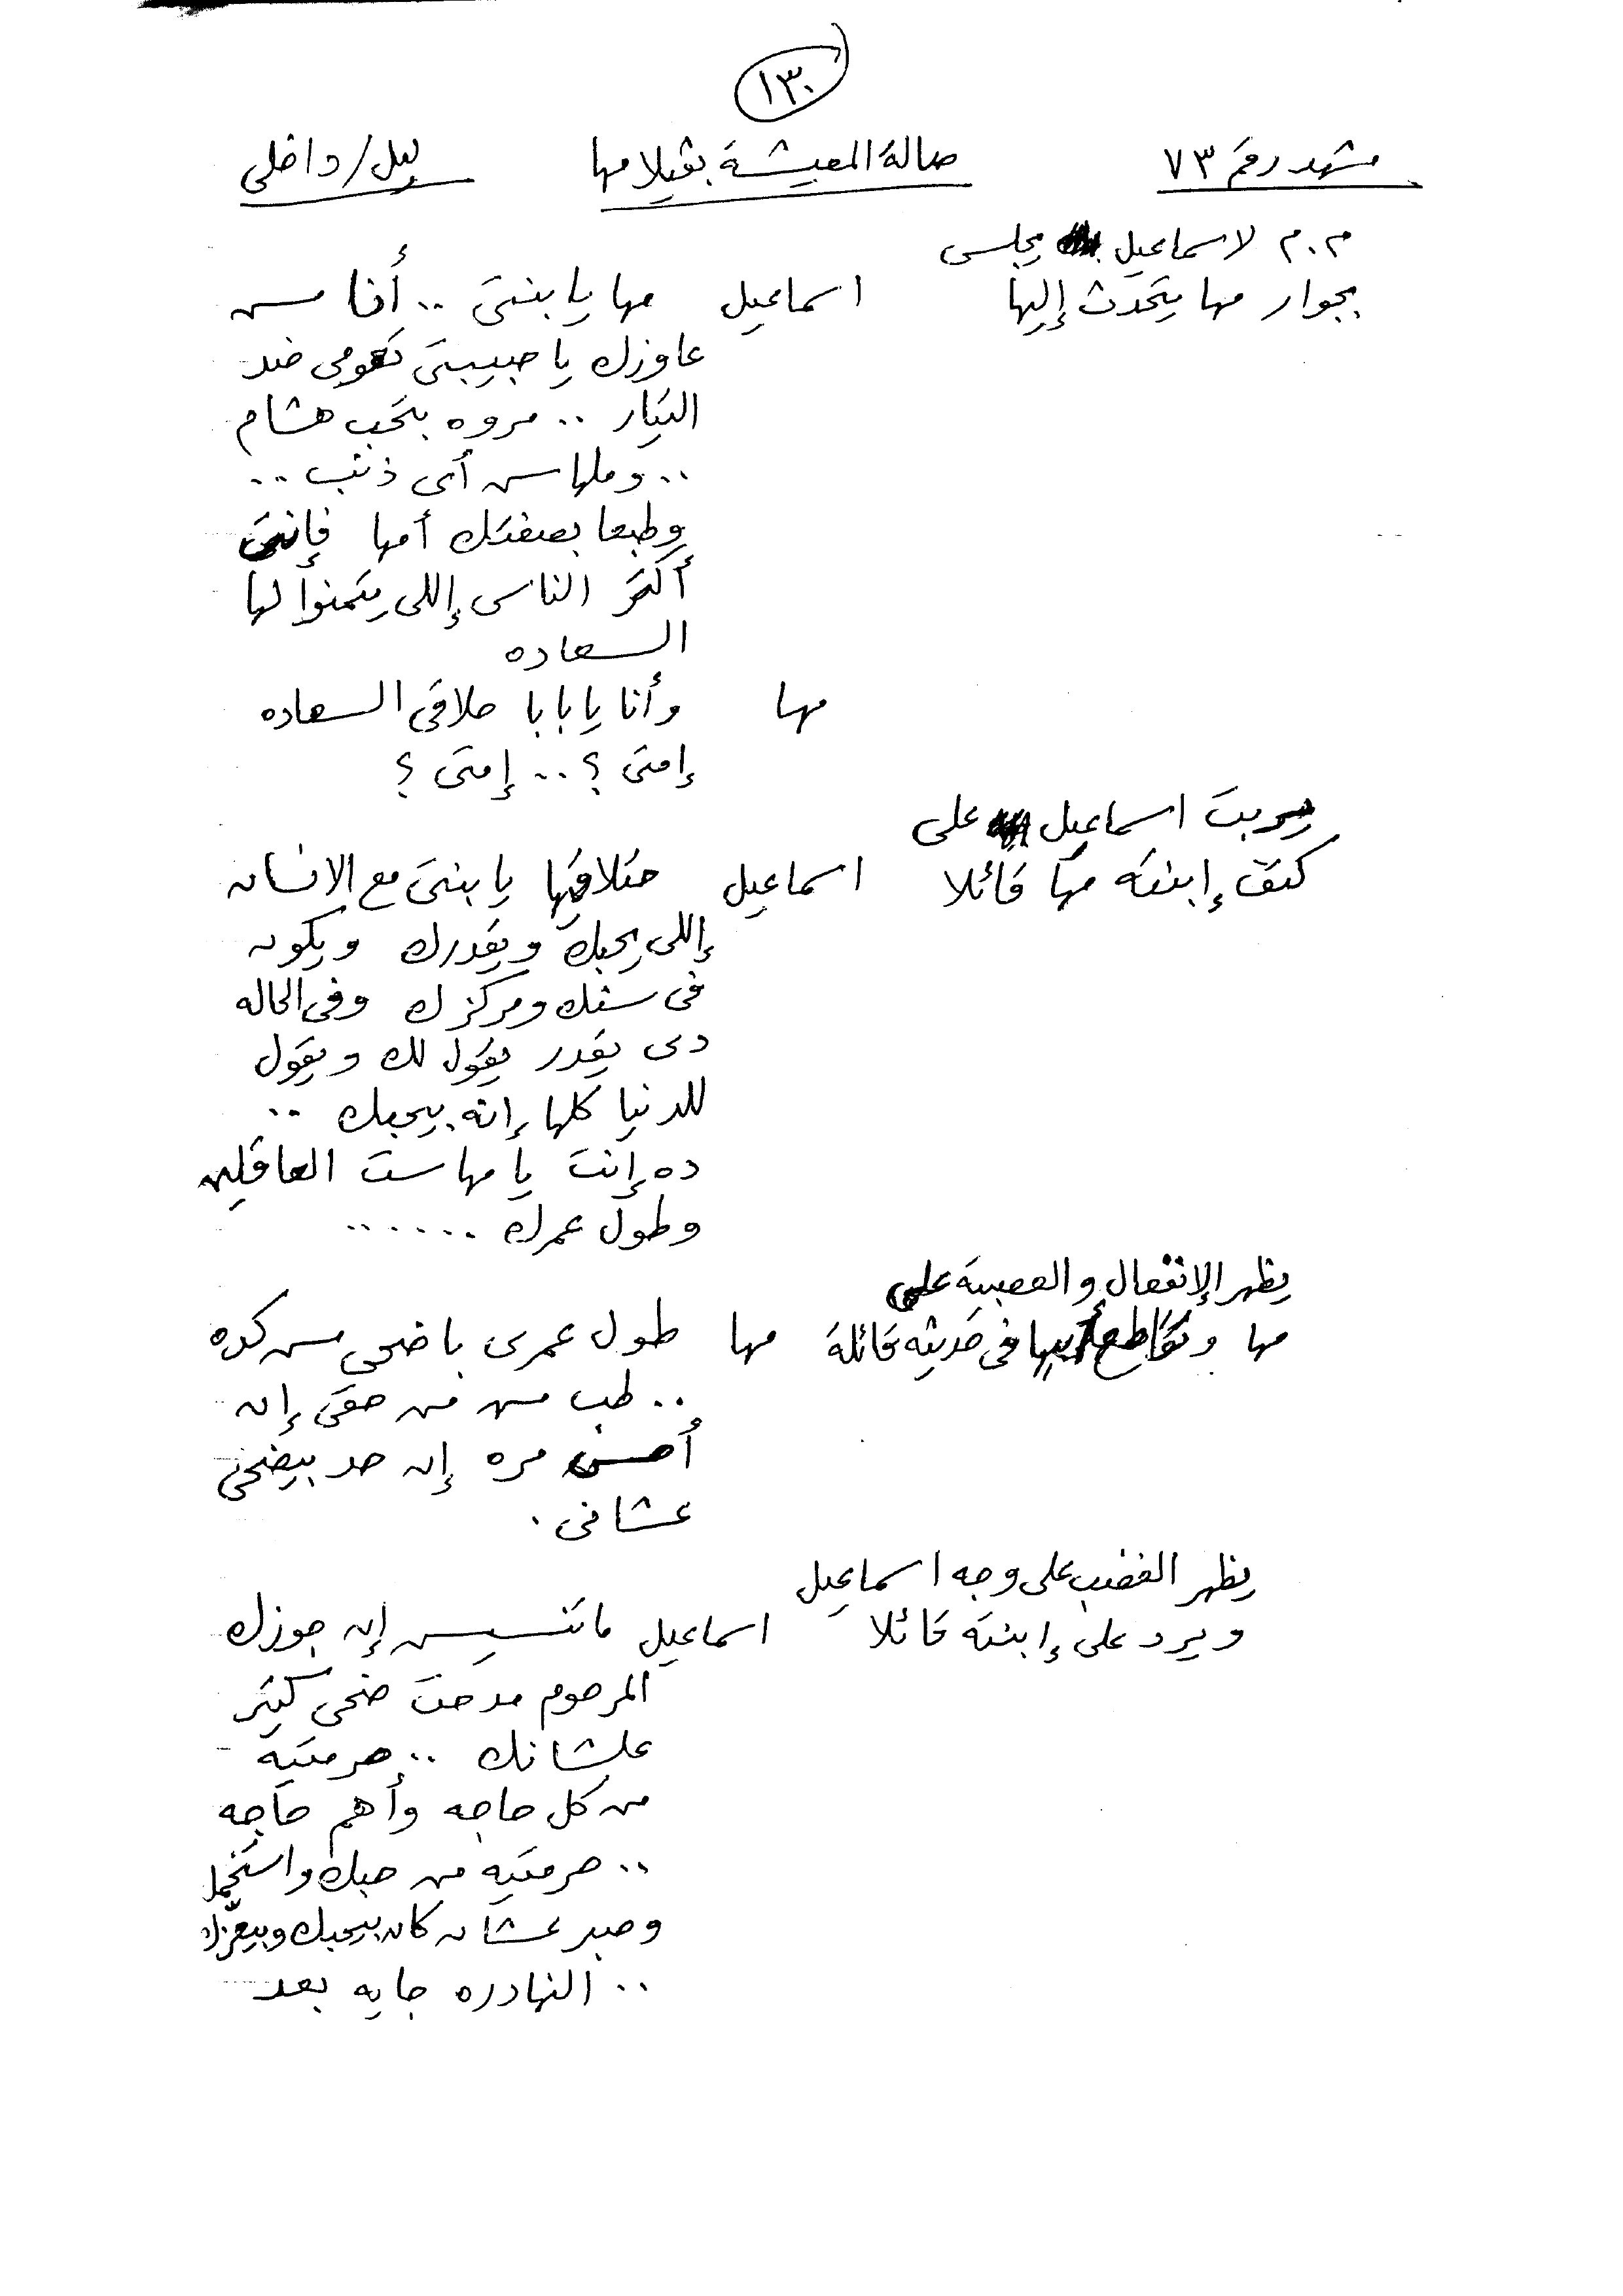 ١٣٠
مشهد رقم ٧٣ صالة المعيشة بڤيلا مها ليل/داخلى
م.م لاسماعيل يجلس
بجوار مها يتحدث إليها اسماعيل مها يا بنتى .. أنا مش
عاوزك يا حبيبتى تقومى ضد
التيار .. مروه بتحب هشام
.. وملهاش أى ذنب ..
وطبعا بصفتك أمها فإنتى
أكتر الناس إللى يتمنوا لها
السعاده
مها وأنا يا بابا حلاقى السعاده
إمتى ؟ .. إمتى ؟
يربت اسماعيل على
كتف إبنته مها قائلا اسماعيل حتلاقيها يا بنتى مع الانسان
إللى يحبك ويقدرك ويكون
فى سنك ومركزك وفى الحاله
دى يقدر يقول لك ويقول
للدنيا كلها إنه بيحبك ..
ده إنت يا مها ست العاقلين
وطول عمرك ......
يظهر الإنفعال والعصبية على
مها وتقاطع أبيها فى حديثه قائلة مها طول عمرى باضحى مش كده
.. طب مش من حقى إن
أحس مره إن حد بيضحى
عشانى .
يظهر الغضب على وجه اسماعيل
ويرد على إبنته قائلا اسماعيل ماتنسيش إن جوزك
المرحوم مدحت ضحى كتير
علشانك .. حرمتيه
من كل حاجه وأهم حاجه
.. حرمتيه من حبك واستحمل
وصبر عشان كان بيحبك وبيعزك
.. النهارده جايه بعد